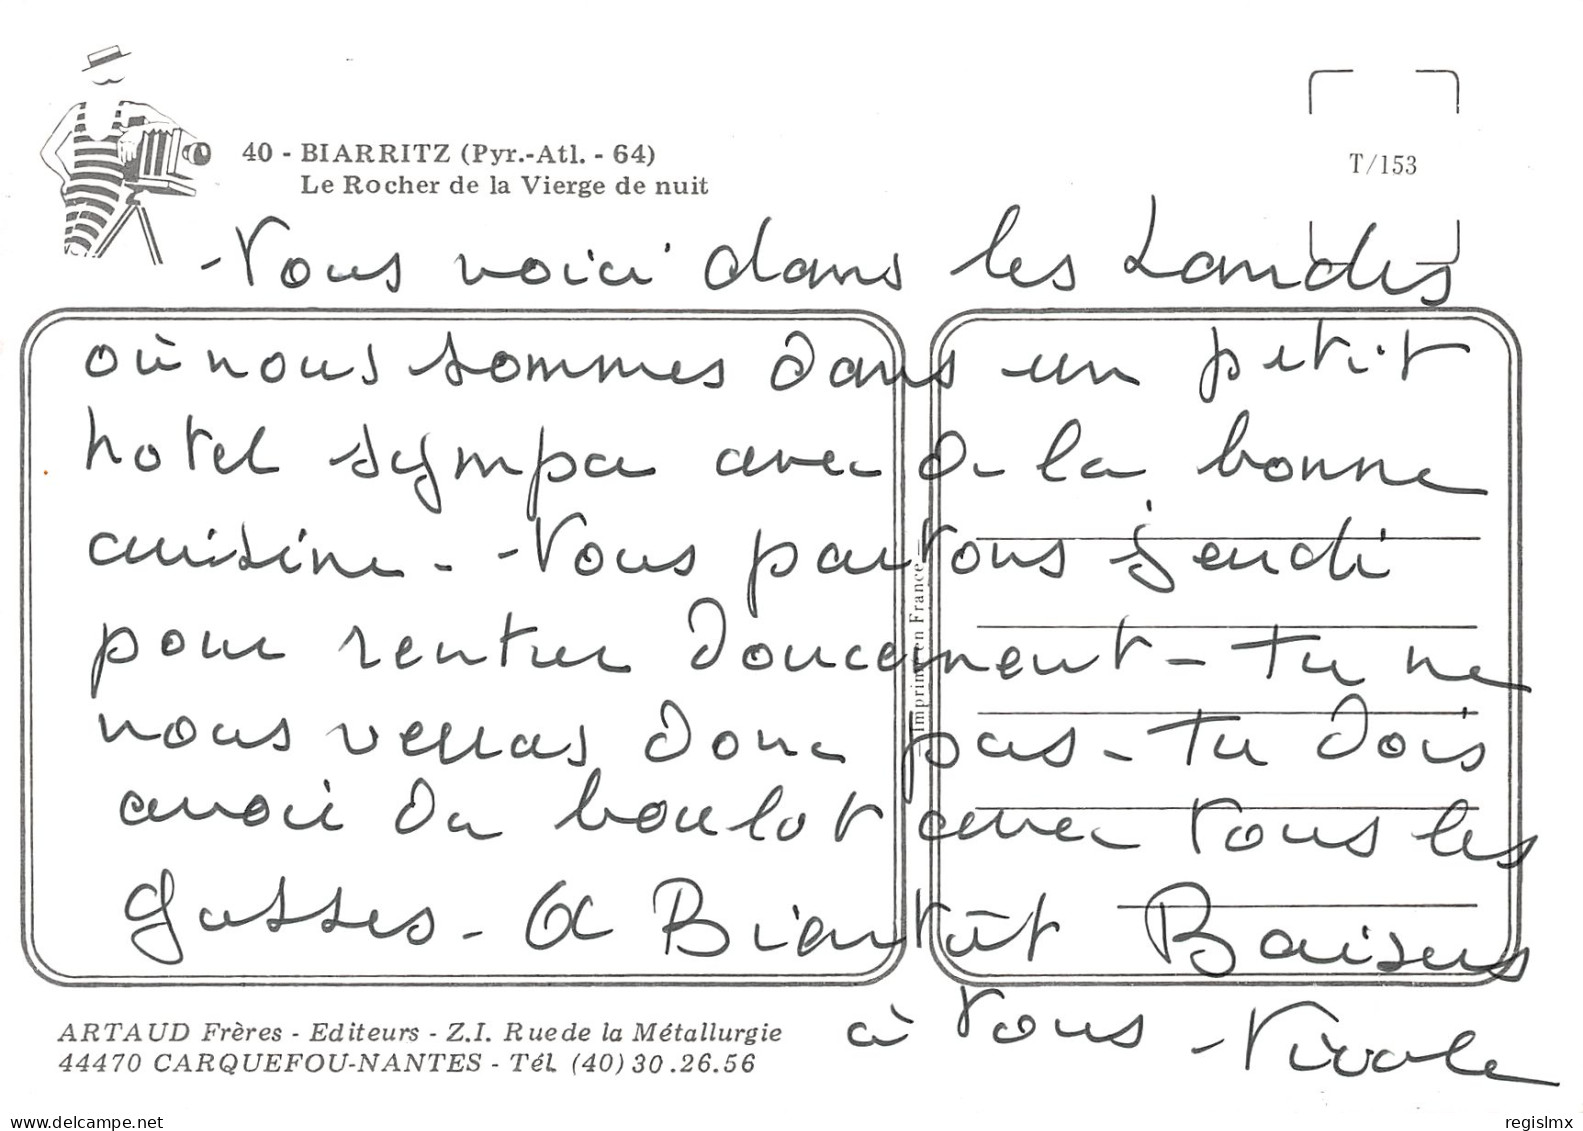 40 - BIARRITZ (Pyr.-Atl. - 64)
Le Rocher de la Vierge de nuit
T/153
Nous voici dans les Landes
où nous sommes dans un petit
hotel sympa avec de la bonne
cuisine - Nous partons jeudi
pour rentrer doucement - Tu ne
nous verras donc pas - Tu dois
avoir du boulot avec tous les
gosses - A Bientôt Baisers
à tous - Nicole
Imprimé en France
ARTAUD Frères - Editeurs - Z.I. Rue de la Métallurgie
44470 CARQUEFOU-NANTES - Tél. (40) 30.26.56
www.delcampe.net
regislmx